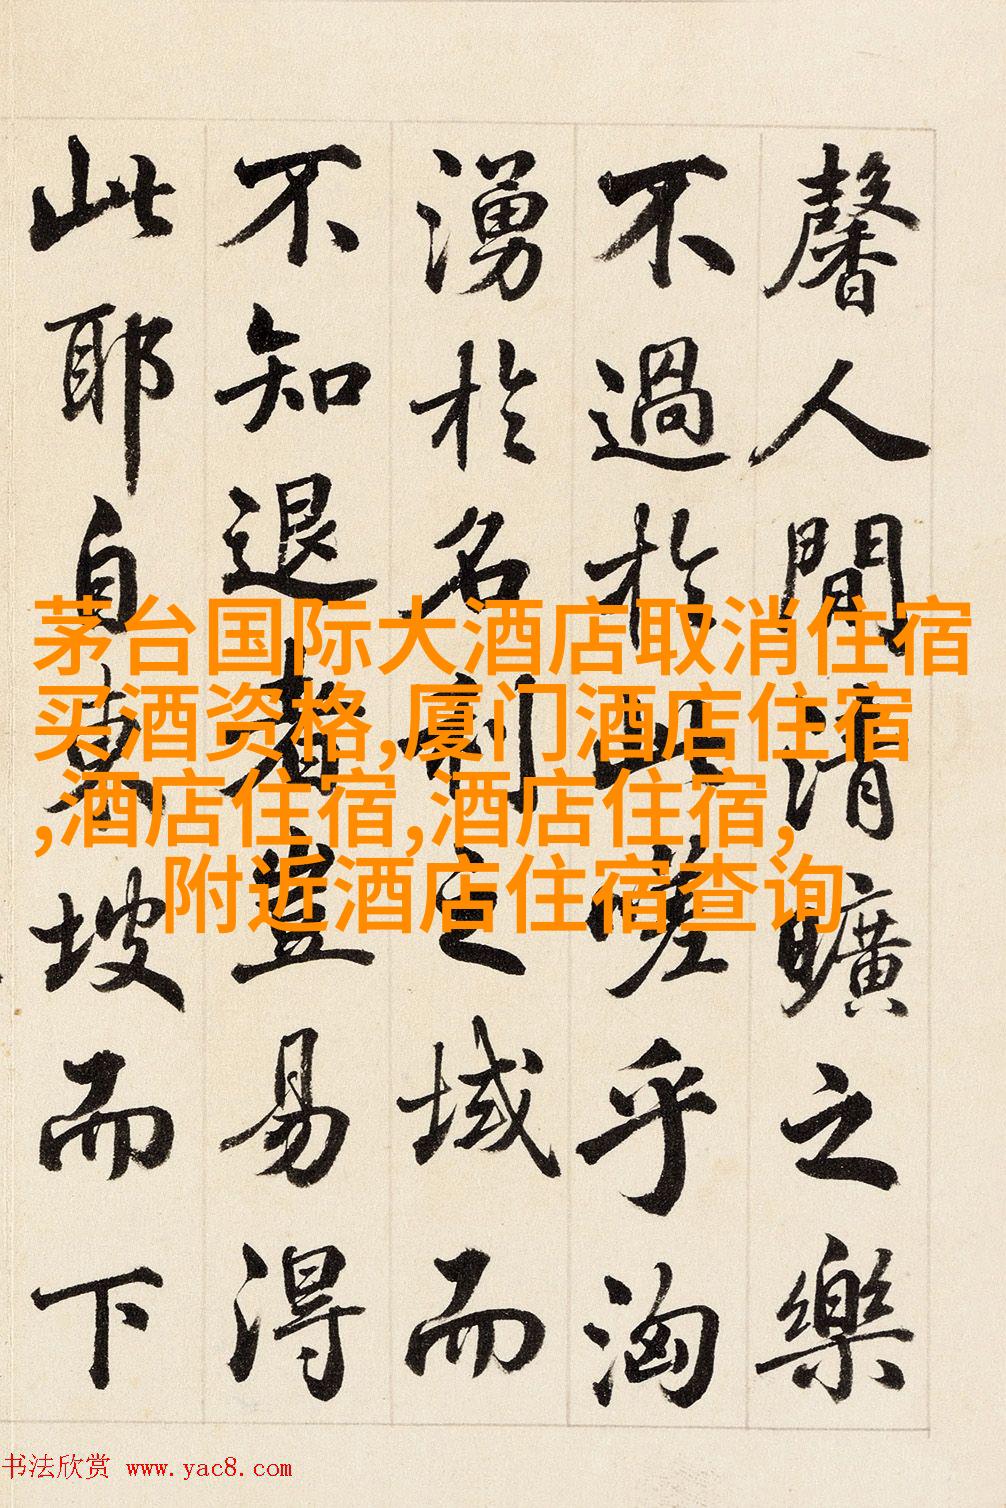 馨人間清曠之樂
不過於此嗟乎洶
湧於名利之域而
不知退者豈易得
此耶自東坡而下
茅台国际大酒店取消住宿
买酒资格,厦门酒店住宿
,酒店住宿,酒店住宿,
附近酒店住宿查询
书法欣赏 www.yac8.com